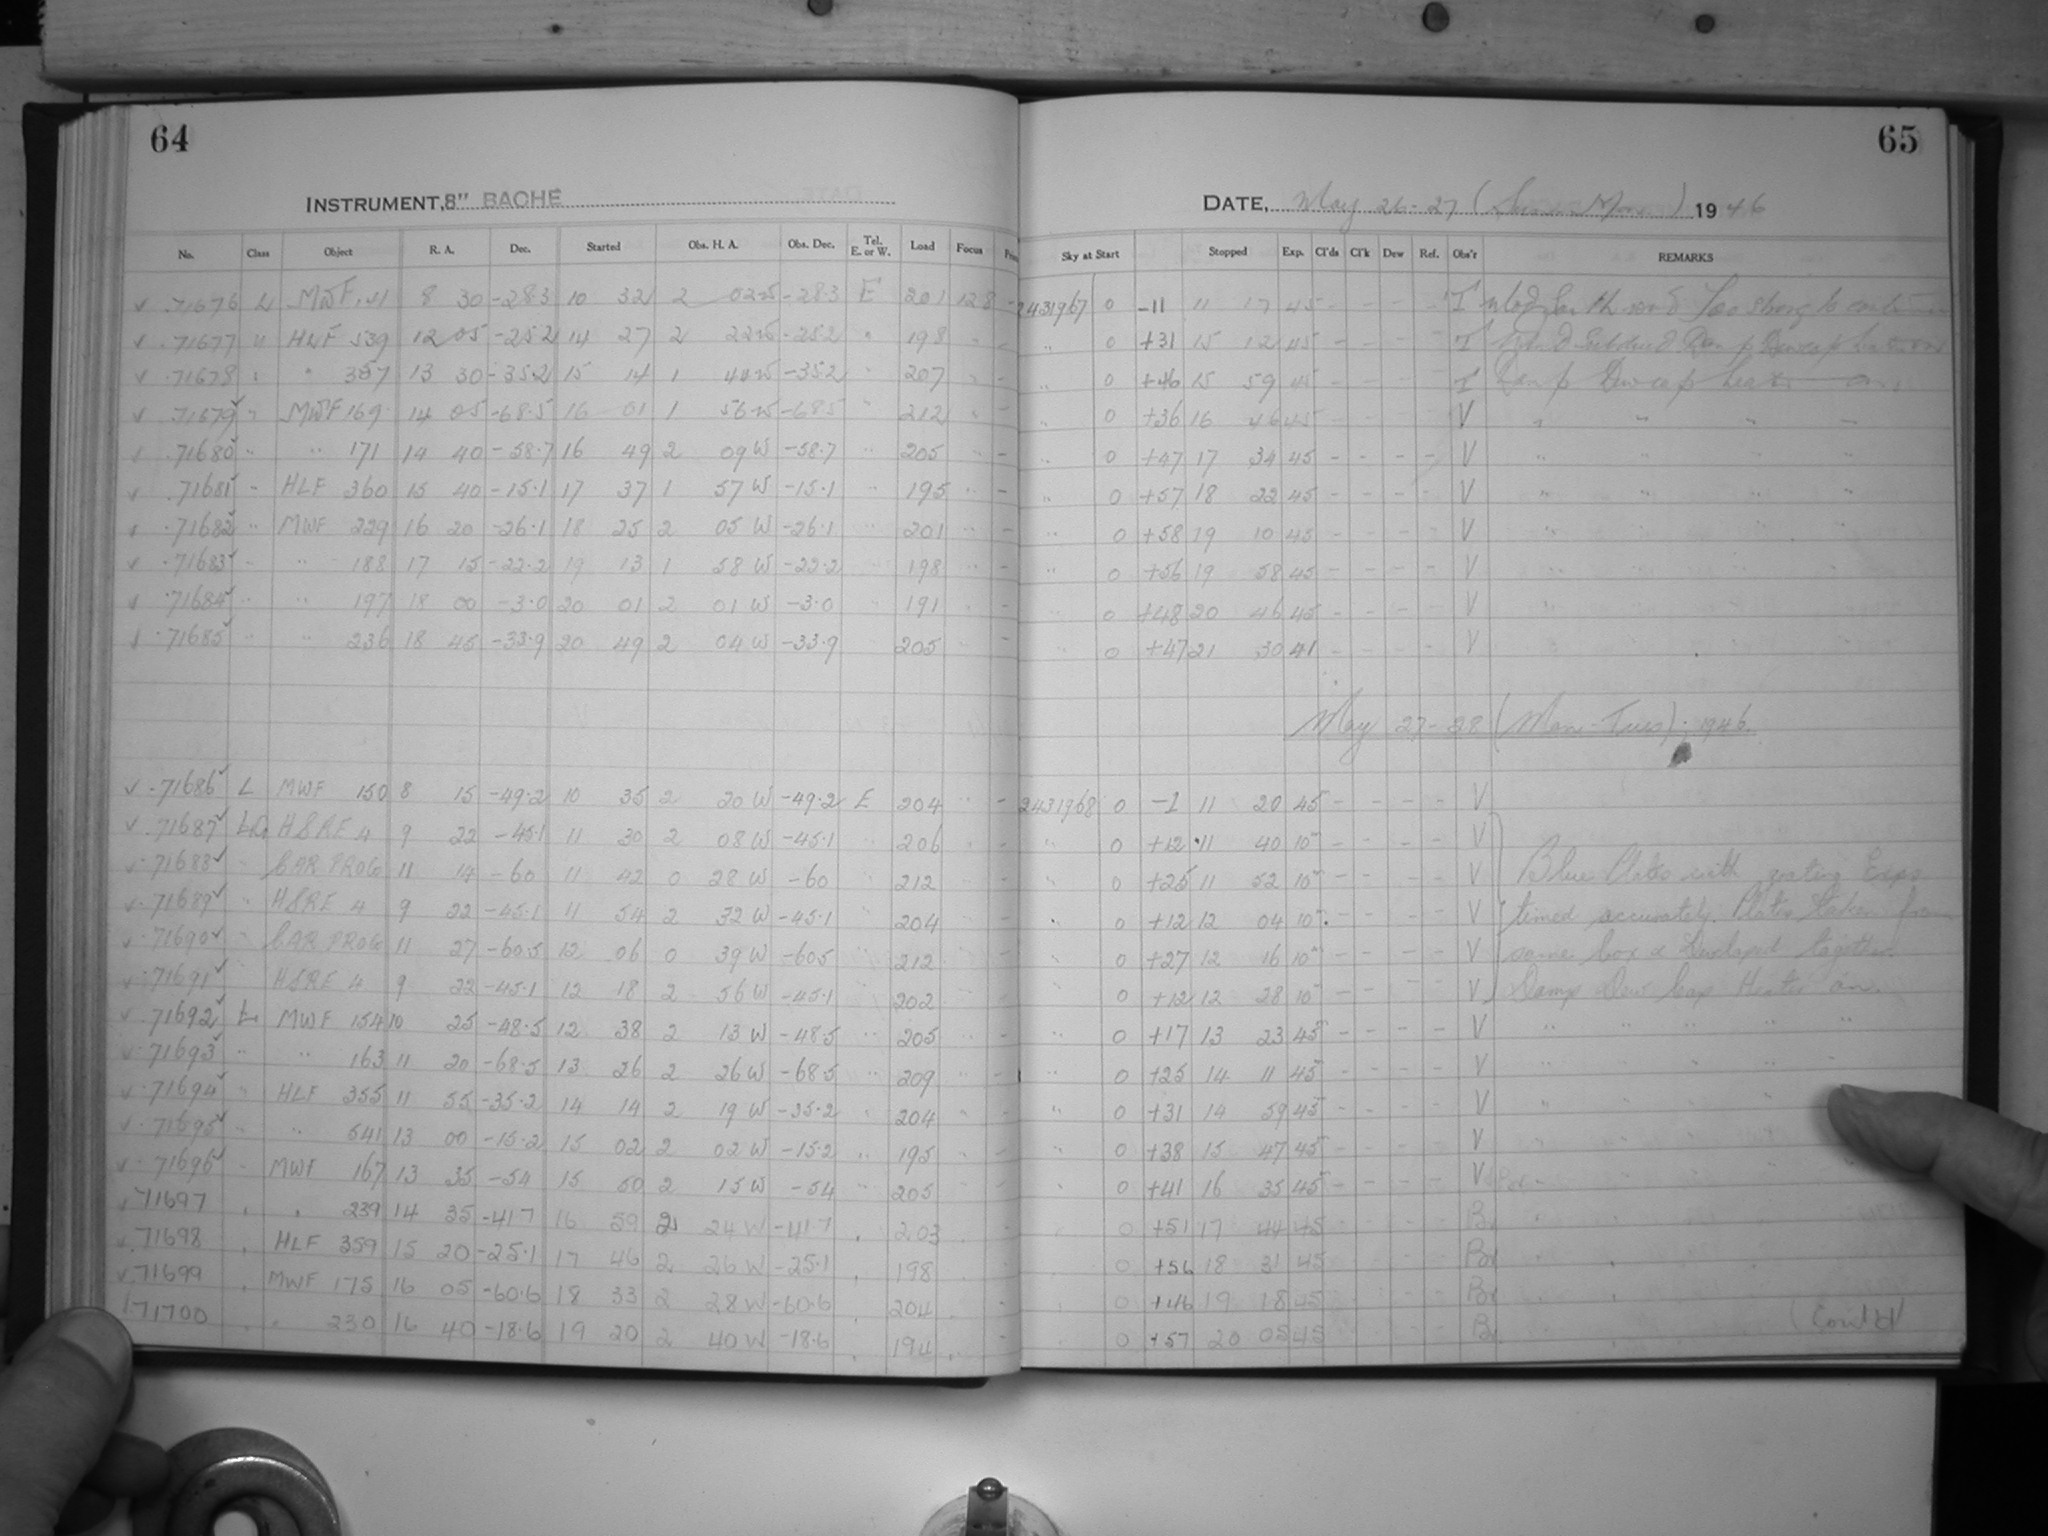 64
65
INSTRUMENT, 8" BACHE
DATE, May 26-27 (Sun-Mon) 1946
No. Class Object R. A. Dec. Started Obs. H. A. Obs. Dec. Tel. E. or W. Load Focus Sky at Start Stopped Exp. Cl'ds Cl'k Dew Ref. Obs'r REMARKS
v 71676 L MWF 141 8 30 -28.3 10 32 2 02W -28.3 E 201 128 - 2431967 0 -11 11 17 45 - - - - I too strong to
v 71677 " HLF 539 12 05 -25.2 14 27 2 22W -25.2 " 198 " - " 0 +31 15 12 45 - - - - I Damp Dewcap heater on
v 71678 " " 357 13 30 -35.2 15 14 1 44W -35.2 " 207 " - " 0 +46 15 59 45 - - - - I Damp Dewcap heater on
v 71679 " MWF 169 14 05 -68.5 16 01 1 56W -68.5 " 212 " - " 0 +36 16 46 45 - - - - V " " " "
v 71680 " " 171 14 40 -58.7 16 49 2 09W -58.7 " 205 " - " 0 +47 17 34 45 - - - - V " " " "
v 71681 " HLF 360 15 40 -15.1 17 37 1 57W -15.1 " 195 " - " 0 +57 18 22 45 - - - - V " " " "
v 71682 " MWF 229 16 20 -26.1 18 25 2 05W -26.1 " 201 " - " 0 +58 19 10 45 - - - - V " " " "
v 71683 " " 188 17 15 -22.2 19 13 1 58W -22.2 " 198 " - " 0 +56 19 58 45 - - - - V " " " "
v 71684 " " 197 18 00 -3.0 20 01 2 01W -3.0 " 191 " - " 0 +48 20 46 45 - - - - V " " " "
v 71685 " " 236 18 45 -33.9 20 49 2 04W -33.9 205 " - " 0 +47 21 30 41 - - - - V " " " "
May 27-28 (Mon-Tues), 1946
v 71686 L MWF 150 8 15 -49.2 10 35 2 20W -49.2 E 204 " - 2431968 0 -1 11 20 45 - - - - V
v 71687 HSRE 4 9 22 -45.1 11 30 2 08W -45.1 " 206 " - " 0 +12 11 40 10 - - - - V
v 71688 " BAR PROG 11 14 -60 11 42 0 28W -60 " 212 " - " 0 +25 11 52 10 - - - - V Blue Plates with grating Exps
v 71689 " HSRE 4 9 22 -45.1 11 54 2 32W -45.1 " 204 " - " 0 +12 12 04 10 - - - - V timed accurately. Plates taken from
v 71690 " BAR PROG 11 27 -60.5 12 06 0 39W -60.5 " 212 " - " 0 +27 12 16 10 - - - - V same box & Developed together.
v 71691 " HSRE 4 9 22 -45.1 12 18 2 56W -45.1 " 202 " - " 0 +12 12 28 10 - - - - V Damp Dew Cap Heater on.
v 71692 L MWF 154 10 25 -48.5 12 38 2 13W -48.5 " 205 " - " 0 +17 13 23 45 - - - - V " " " " "
v 71693 " " 163 11 20 -68.5 13 26 2 26W -68.5 " 209 " - " 0 +25 14 11 45 - - - - V " " " " "
v 71694 " HLF 355 11 55 -35.2 14 14 2 19W -35.2 " 204 " - " 0 +31 14 59 45 - - - - V " " " "
v 71695 " " 541 13 00 -15.2 15 02 2 02W -15.2 " 195 " - " 0 +38 15 47 45 - - - - V " " " "
v 71696 " MWF 167 13 35 -54 15 50 2 15W -54 " 205 " - " 0 +41 16 35 45 - - - - V
v 71697 " " 239 14 35 -41.7 16 59 2 24W -41.7 " 203 " - " 0 +51 17 44 45 - - - -
v 71698 " HLF 359 15 20 -25.1 17 46 2 26W -25.1 " 198 " - " 0 +56 18 31 45 - - - -
v 71699 " MWF 175 16 05 -60.6 18 33 2 28W -60.6 " 204 " - " 0 +46 19 18 45 - - - -
71700 " " 230 16 40 -18.6 19 20 2 40W -18.6 " 194 " - " 0 +57 20 05 45 - - - - (Cont'd)